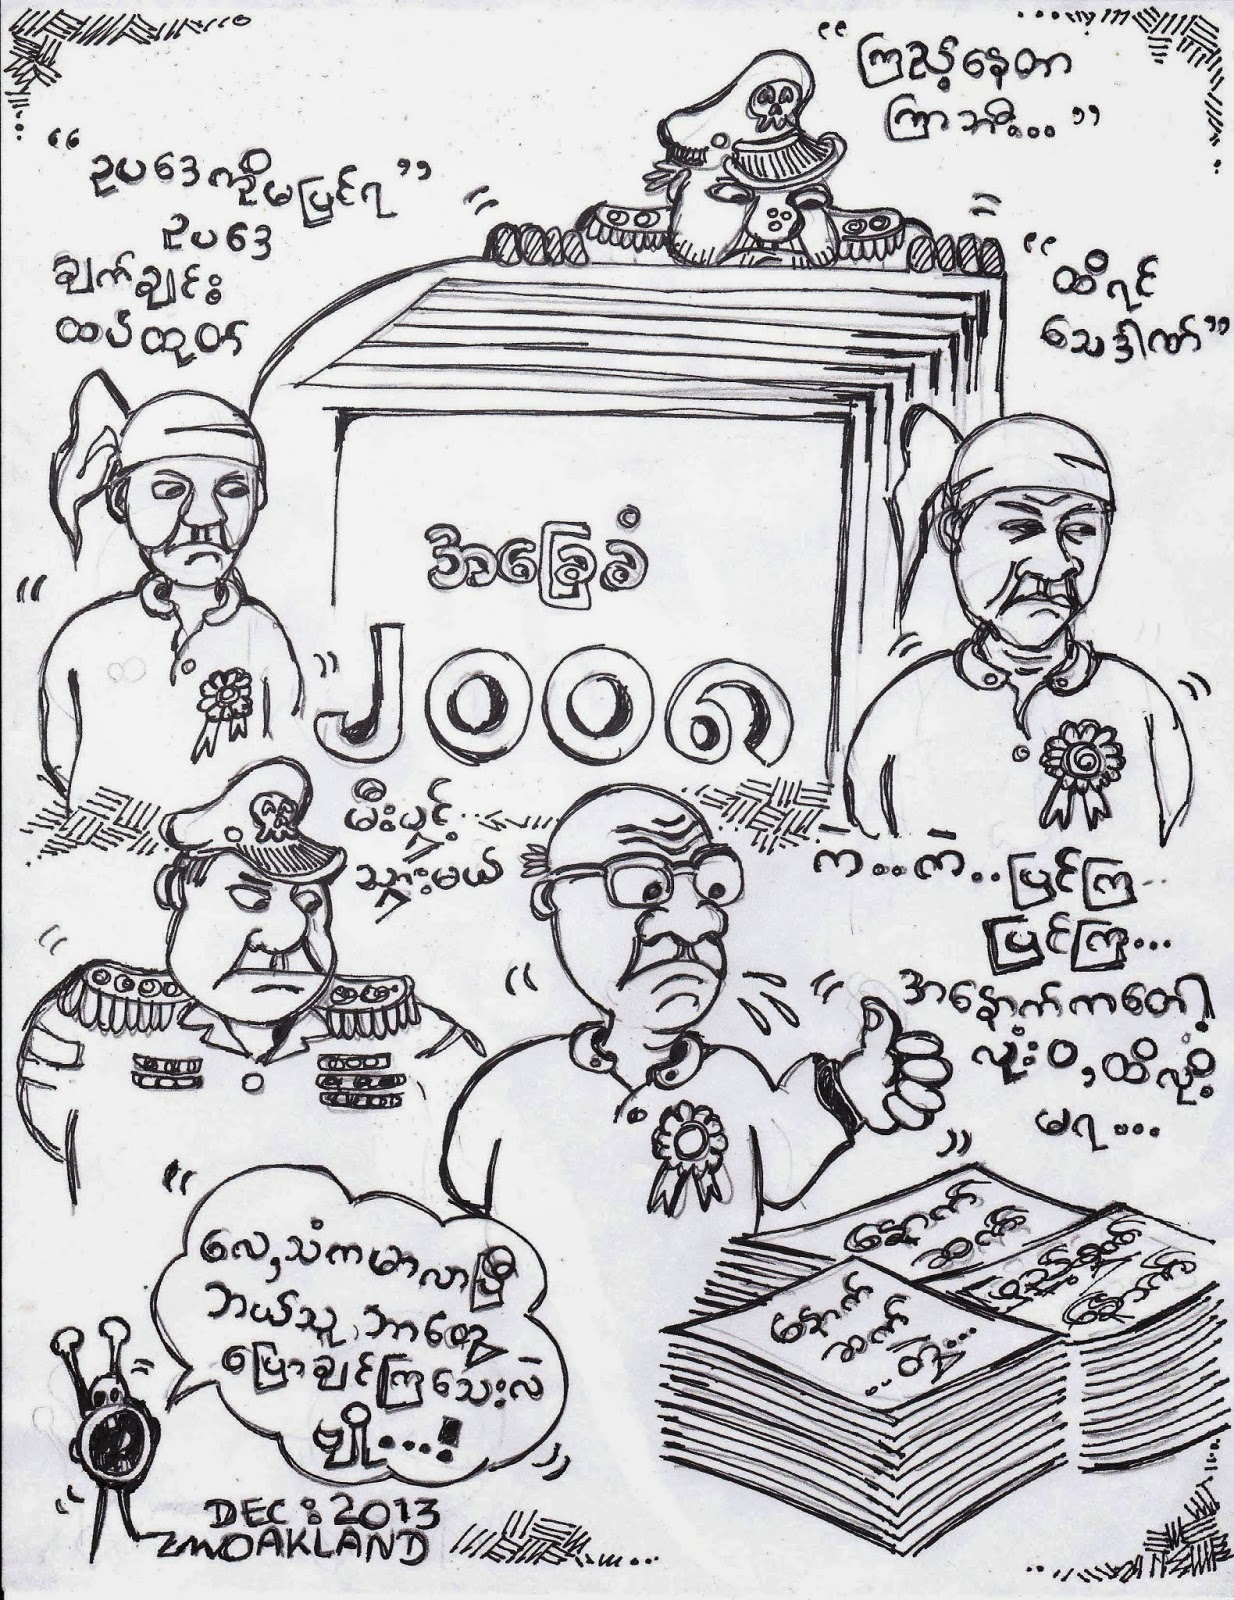 “ ကြည့်နေတာ
ကြာဘီ... ”
“ ဥပဒေကိုမပြင်ရ ”
ဥပဒေ
ချက်ချင်း
ထပ်ထုတ်
“ ထိရင်
သေဒဏ် ”
အခြေခံ
၂၀၀၈
မီးပွင့်
သွားမယ်
ကဲ...ကဲ..ပြင်ကြ..
ပြင်ကြ...
အနောက်ကတော့
လုံးဝ,ထိလို့
မရ...
နောက်
ဆက်
နောက်
ဆက်
..တွဲ...
လေ,သံကမာလာပြီ
ဘယ်သူ,ဘာတွေ
ပြောချင်ကြသေးလဲ
မျို့...!
DEC : 2013
OAKLAND